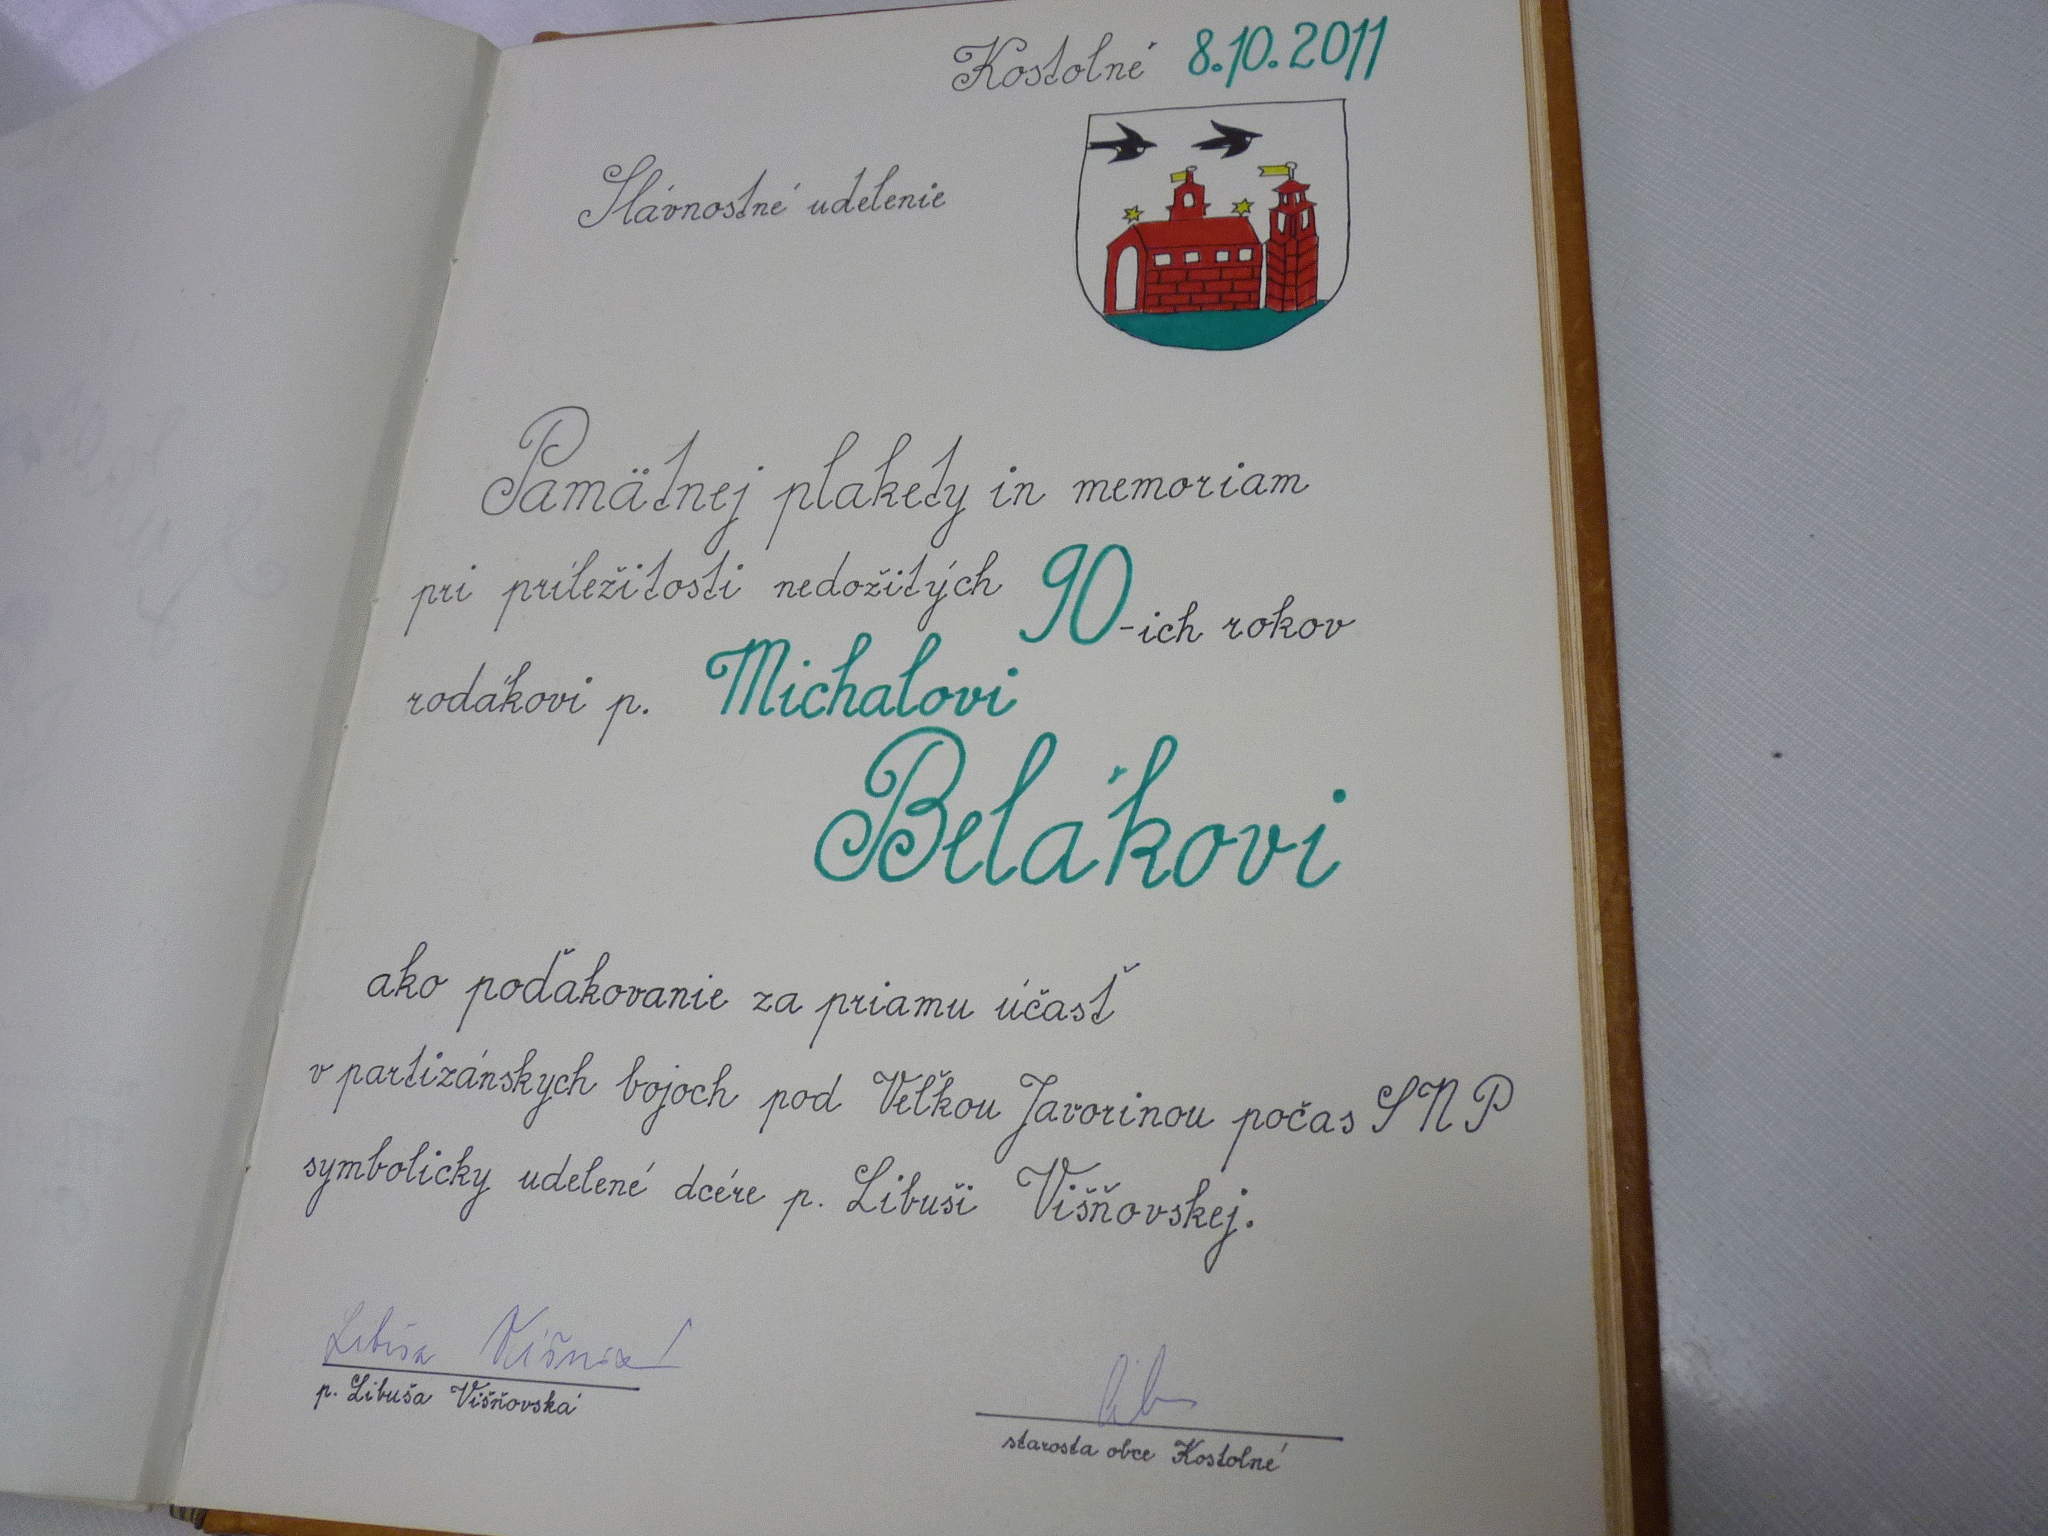 Kostolné 8.10.2011
Slávnostné udelenie
Pamätnej plakety in memoriam
pri príležitosti nedožitých 90-ich rokov
rodákovi p. Michalovi
Belákovi
ako poďakovanie za priamu účasť
v partizánskych bojoch pod Veľkou Javorinou počas SNP
symbolicky udelené dcére p. Libuši Višňovskej.
p. Libuša Višňovská
starosta obce Kostolné